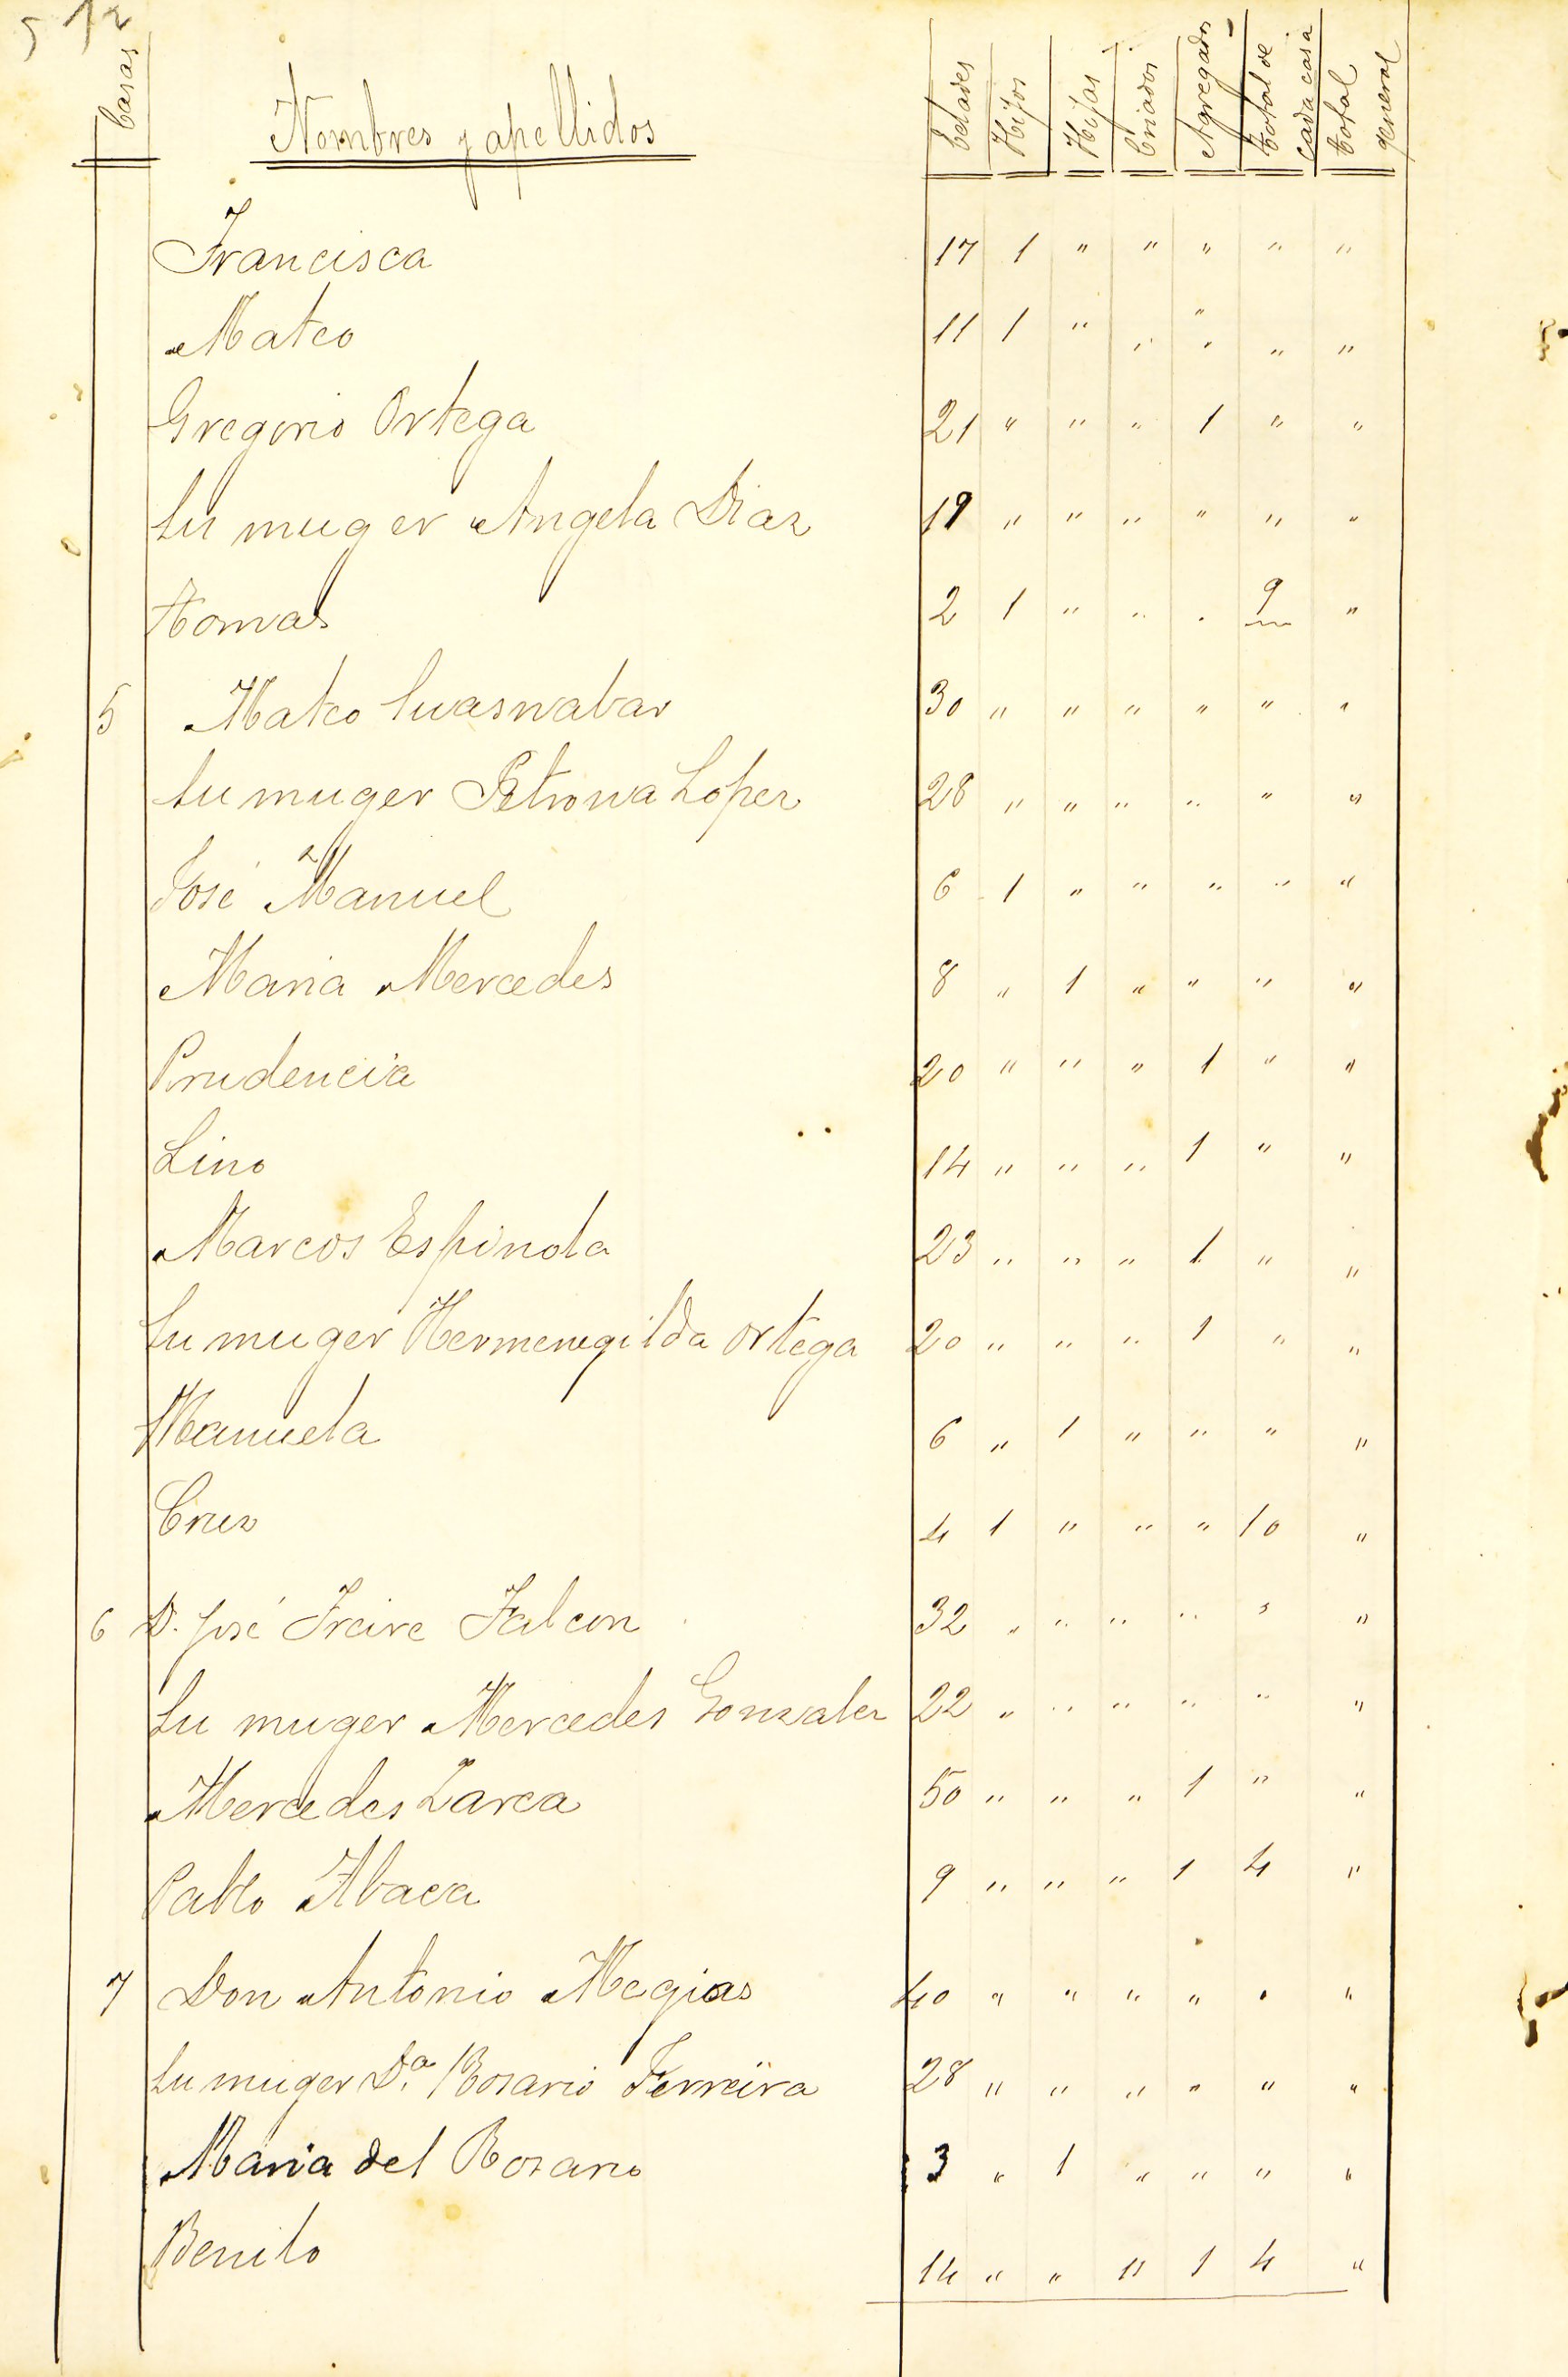 5 12
Casas Nombres y apellidos Edades Hijos Hijas Criados Agregados Total de cada casa Total general
Francisca 17 1 " " " " "
Mateo 11 1 " " " " "
Gregorio Ortega 21 " " " 1 " "
Su muger Angela Diaz 19 " " " " " "
Tomas 2 1 " " . 9 "
5 Mateo Guasnabar 30 " " " " " "
Su muger Petrona Lopez 28 " " " " " "
José Manuel 6 1 " " " " "
Maria Mercedes 8 " 1 " " " "
Prudencia 20 " " " 1 " "
Lino 14 " " " 1 " "
Marcos Espinola 23 " " " 1 " "
Su muger Hermenegilda Ortega 20 " " " 1 " "
Manuela 6 " 1 " " " "
Cruz 4 1 " " " 10 "
6 D. José Freire Falcon 32 " " " " " "
Su muger Mercedes Gonzalez 22 " " " " " "
Mercedes Zarea 50 " " " 1 " "
Pablo Abaca 9 " " " 1 4 "
7 Don Antonio Megias 40 " " " " " "
Su muger D.ª Rosario Ferreira 28 " " " " " "
Maria del Rosario 3 " 1 " " " "
Benito 14 " " " 1 4 "